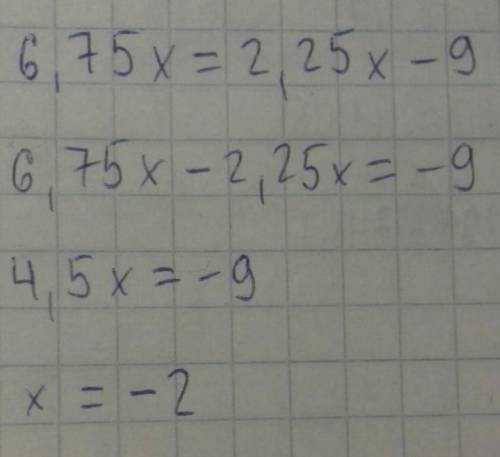 6,75x = 2,25x - 9
6,75x - 2,25x = -9
4,5x = -9
x = -2